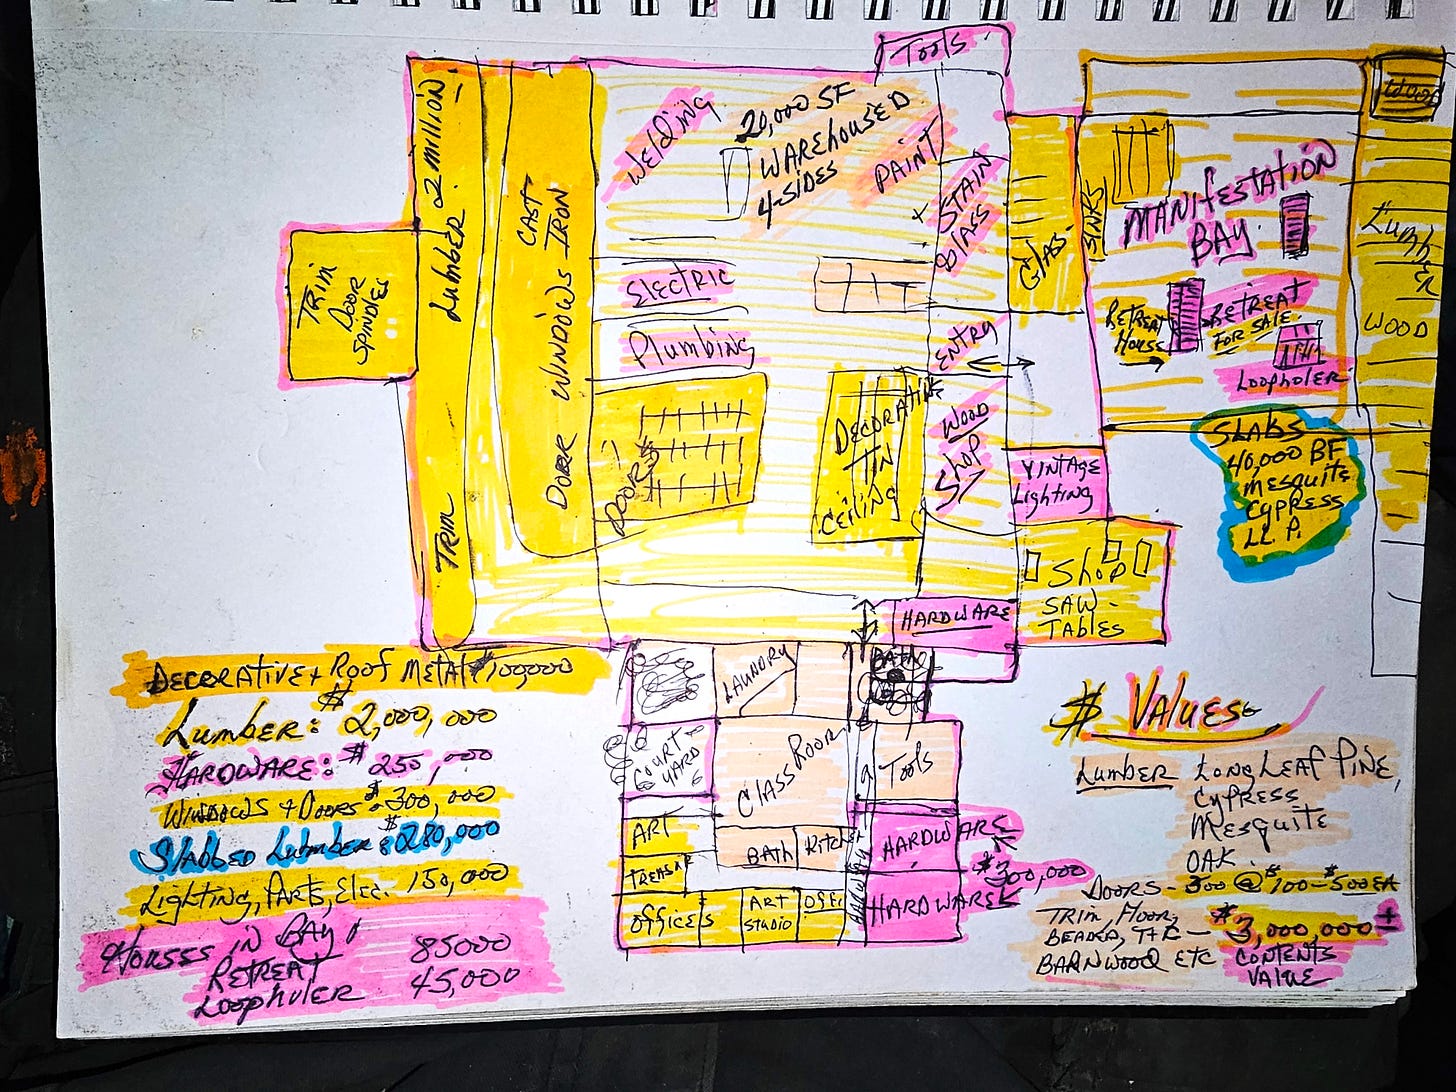 Tools
Wood
Welding
20,000 SF
WAREhousED
4-SIDES
PAINT
+ STAIN
GLASS
Lumber 2 million
TRIM
CAST
IRON
DOOR WINDOWS
TRIM
DOOR
SPINDLES
ELECTRIC
Plumbing
DOORS
DECORATIVE
TIN
CEILING
ENTRY
WOOD
Shop
GLASS
SINKS
MANIFESTATION
BAY
RETREAT
HOUSE
RETREAT
FOR SALE
LoopholER
LumbER
WOOD
SLABS
40,000 BF
MESQUITE
CYPRESS
LL P.
VINTAGE
Lighting
Shop
SAW-
TABLES
HARDWARE
LAUNDRY
BATH
COURT-
YARD
CLASS ROOM
Tools
ART
BATH
KITCH
HARDWARE
TREASR
$300,000
OFFICES
ART
STUDIO
OFFI
HALLWAY
HARDWARE
DECORATIVE + ROOF METAL $100000
LUMBER: $2,000,000
HARDWARE: $250,000
WINDOWS + DOORS $300,000
SLABBED LUMBER: $280,000
Lighting, PARTS, ELEC. 150,000
HOUSES IN BAY
RETREAT 85000
LoopholER 45,000
$ VALUES
Lumber LONGLEAF PINE,
CYPRESS
MESQUITE
OAK
DOORS - 300 @ $100-$500 EA
TRIM, FLOOR,
BEADED, T+G -
BARNWOOD ETC
$3,000,000 ±
CONTENTS
VALUE